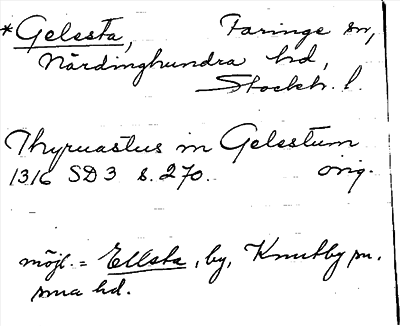 *Gelesta, Faringe sn,
Närdinghundra hd,
Stockh. l.
Thyruastus in Gelestum
1316 SD 3 s. 270. orig.
möjl. = Ellsta, by, Knutby sn.
sma hd.